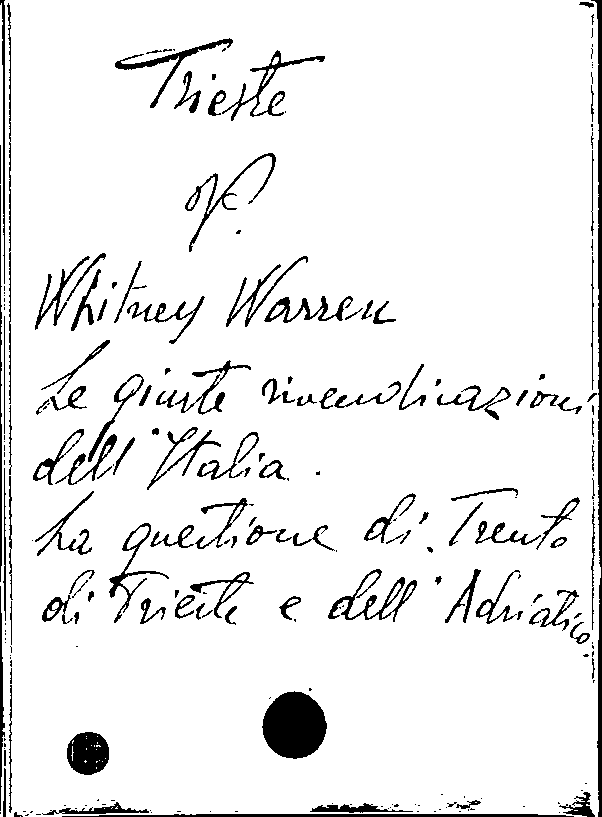 Trieste
V.
Whitney Warren
Le giuste rivendicazioni
dell'Italia.
La questione di Trento
di Trieste e dell'Adriatico.